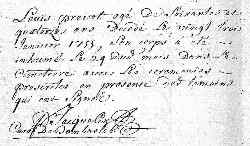 Louis provost agé de Soixantes et
quatorze ans Décédé le vingt trois
Janvier 1755, Son corps a été
inhumé le 24 dud. mois Dans le
Cimetiere avec les ceremonies
prescrites en presence des temoins
qui ont signés